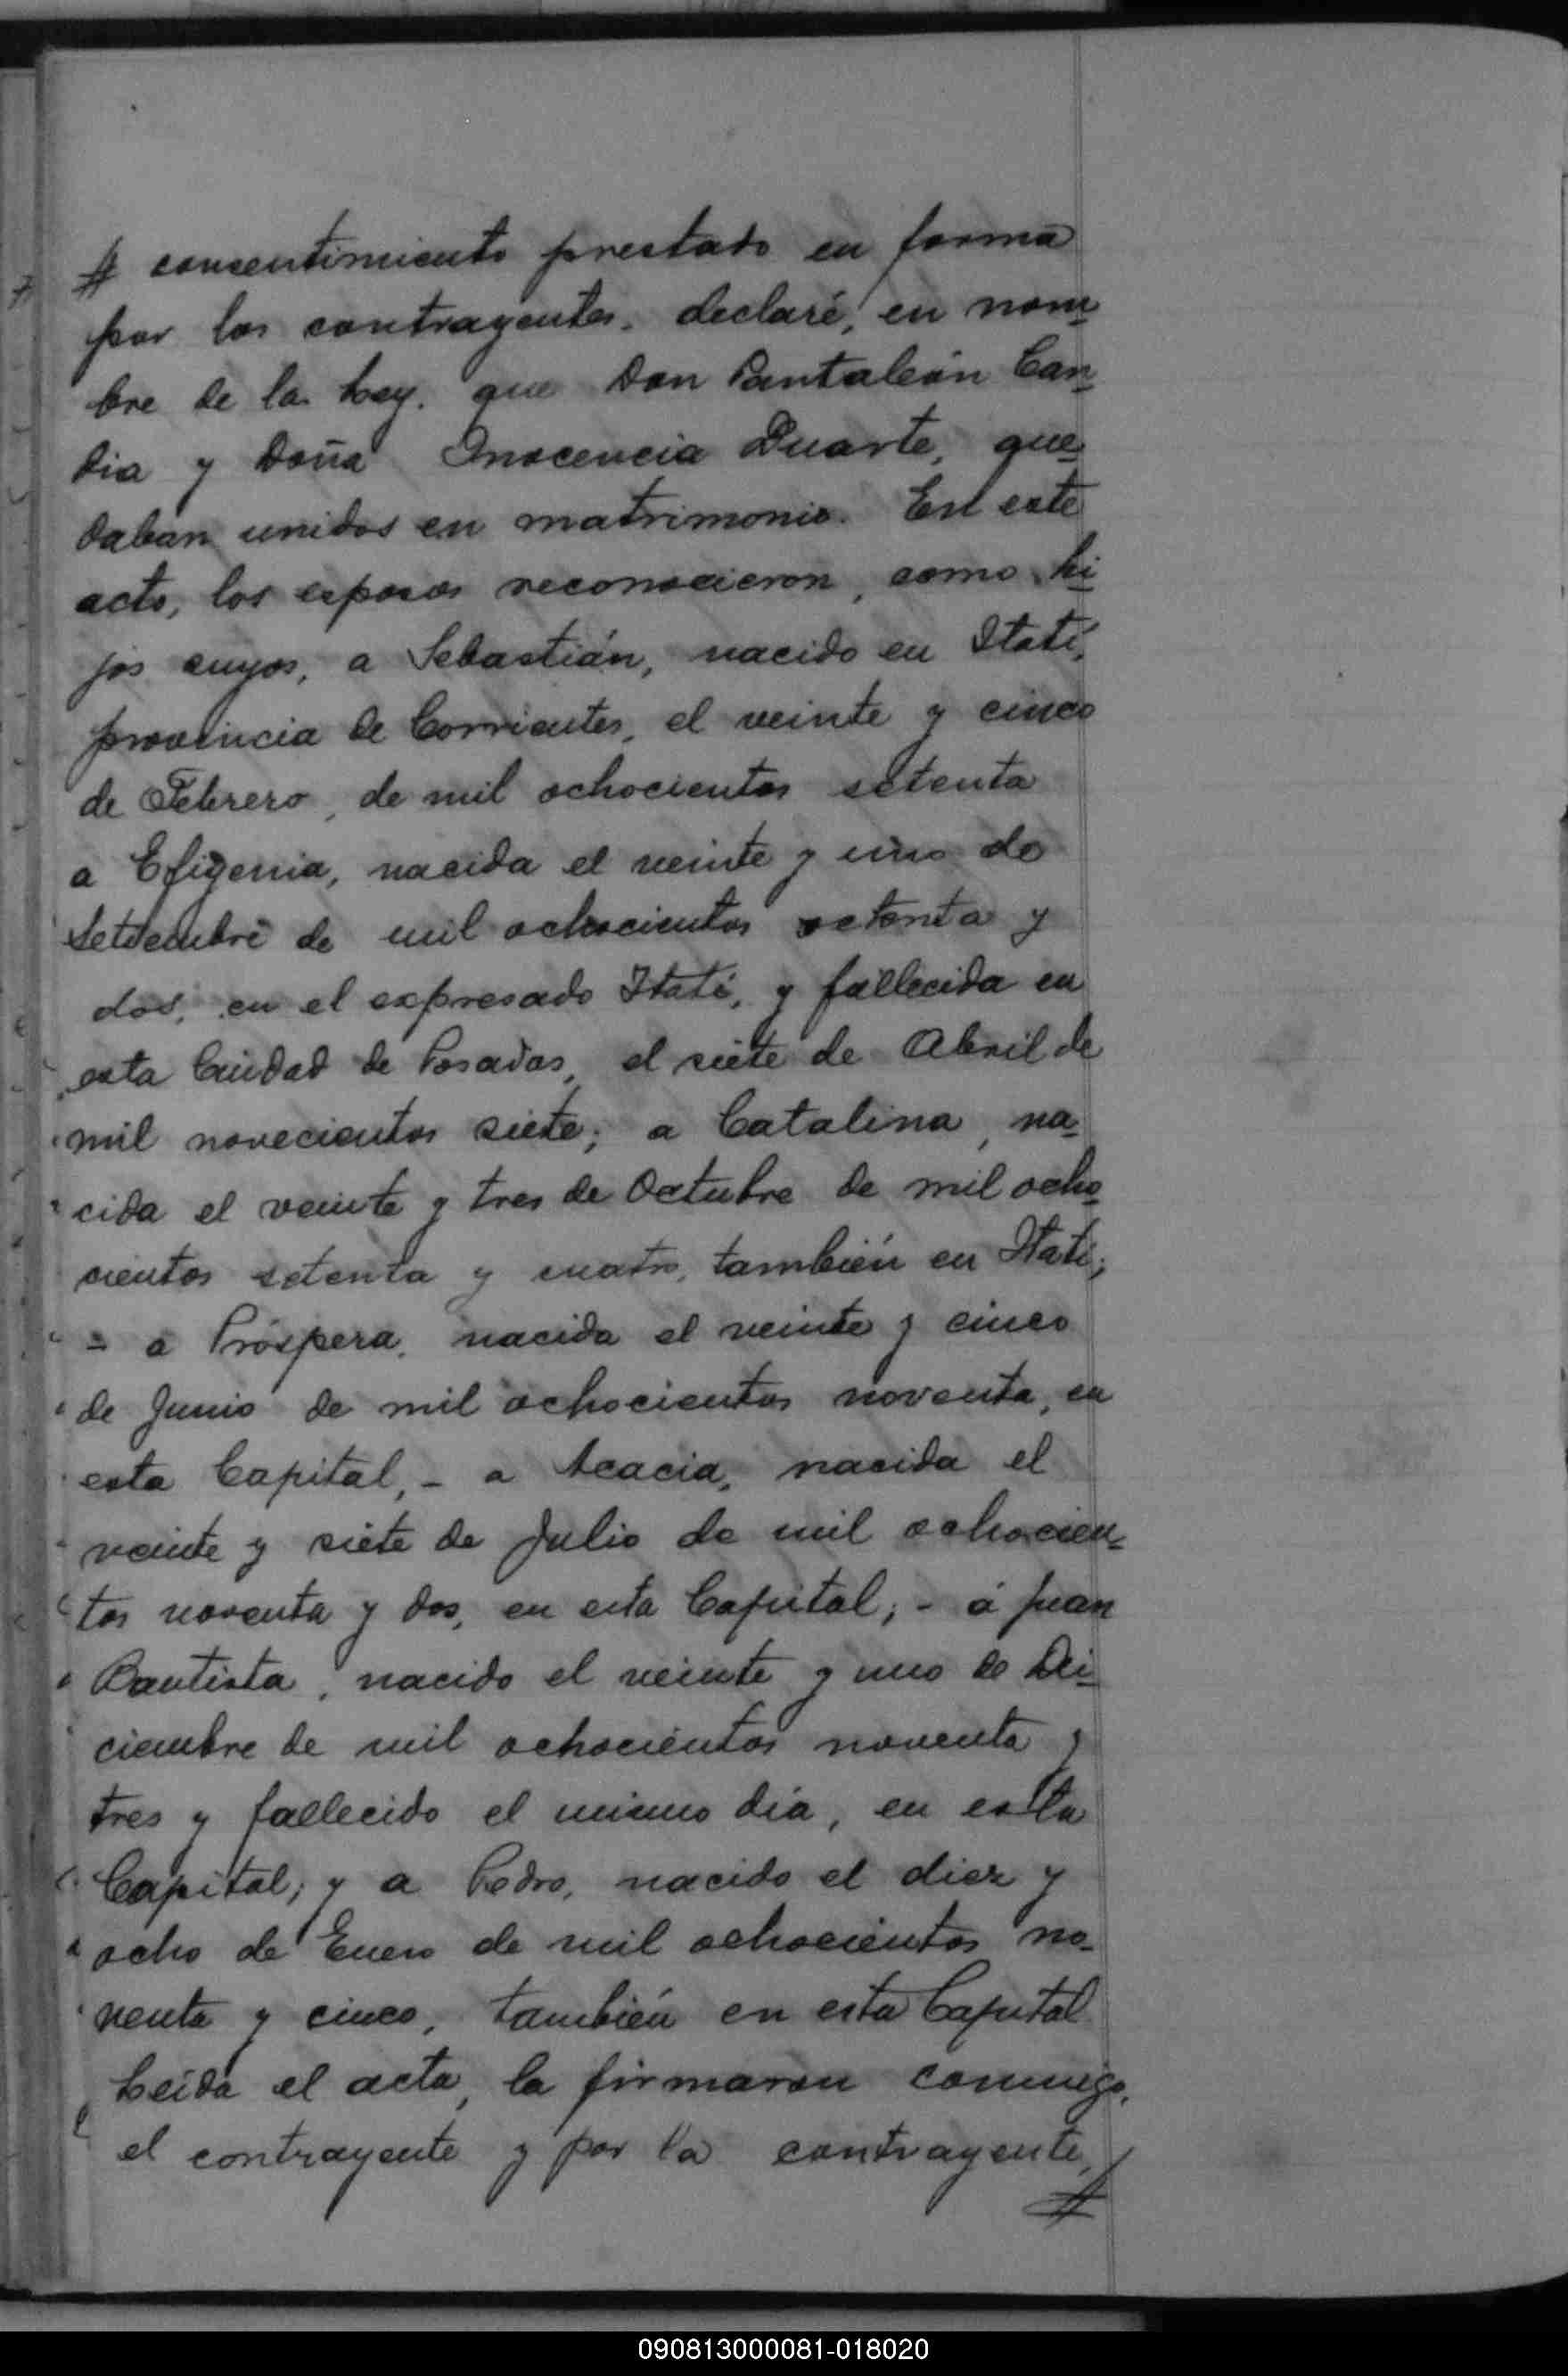 # consentimiento prestado en forma
por los contrayentes, declaré, en nom=
bre de la Ley, que Don Pantaleón Can=
dia y Doña Inocencia Duarte, que=
daban unidos en matrimonio. En este
acto, los esposos reconocieron, como hi=
jos suyos, a Sebastián, nacido en Itatí,
provincia de Corrientes, el veinte y cinco
de Febrero, de mil ochocientos setenta
a Efigenia, nacida el veinte y uno de
Setiembre de mil ochocientos setenta y
dos, en el expresado Itatí, y fallecida en
esta Ciudad de Posadas, el siete de Abril de
mil novecientos siete; a Catalina, na=
cida el veinte y tres de Octubre de mil ocho=
cientos setenta y cuatro, también en Itatí;
= a Próspera, nacida el veinte y cinco
de Junio de mil ochocientos noventa, en
esta Capital, - a Acacia, nacida el
veinte y siete de Julio de mil ochocien=
tos noventa y dos, en esta Capital; - á Juan
Bautista, nacido el veinte y uno de Di=
ciembre de mil ochocientos noventa y
tres y fallecido el mismo día, en esta
Capital; y a Pedro, nacido el diez y
ocho de Enero de mil ochocientos no=
venta y cinco, también en esta Capital
Leída el acta, la firmaron conmigo,
el contrayente y por la contrayente,
#
090813000081-018020